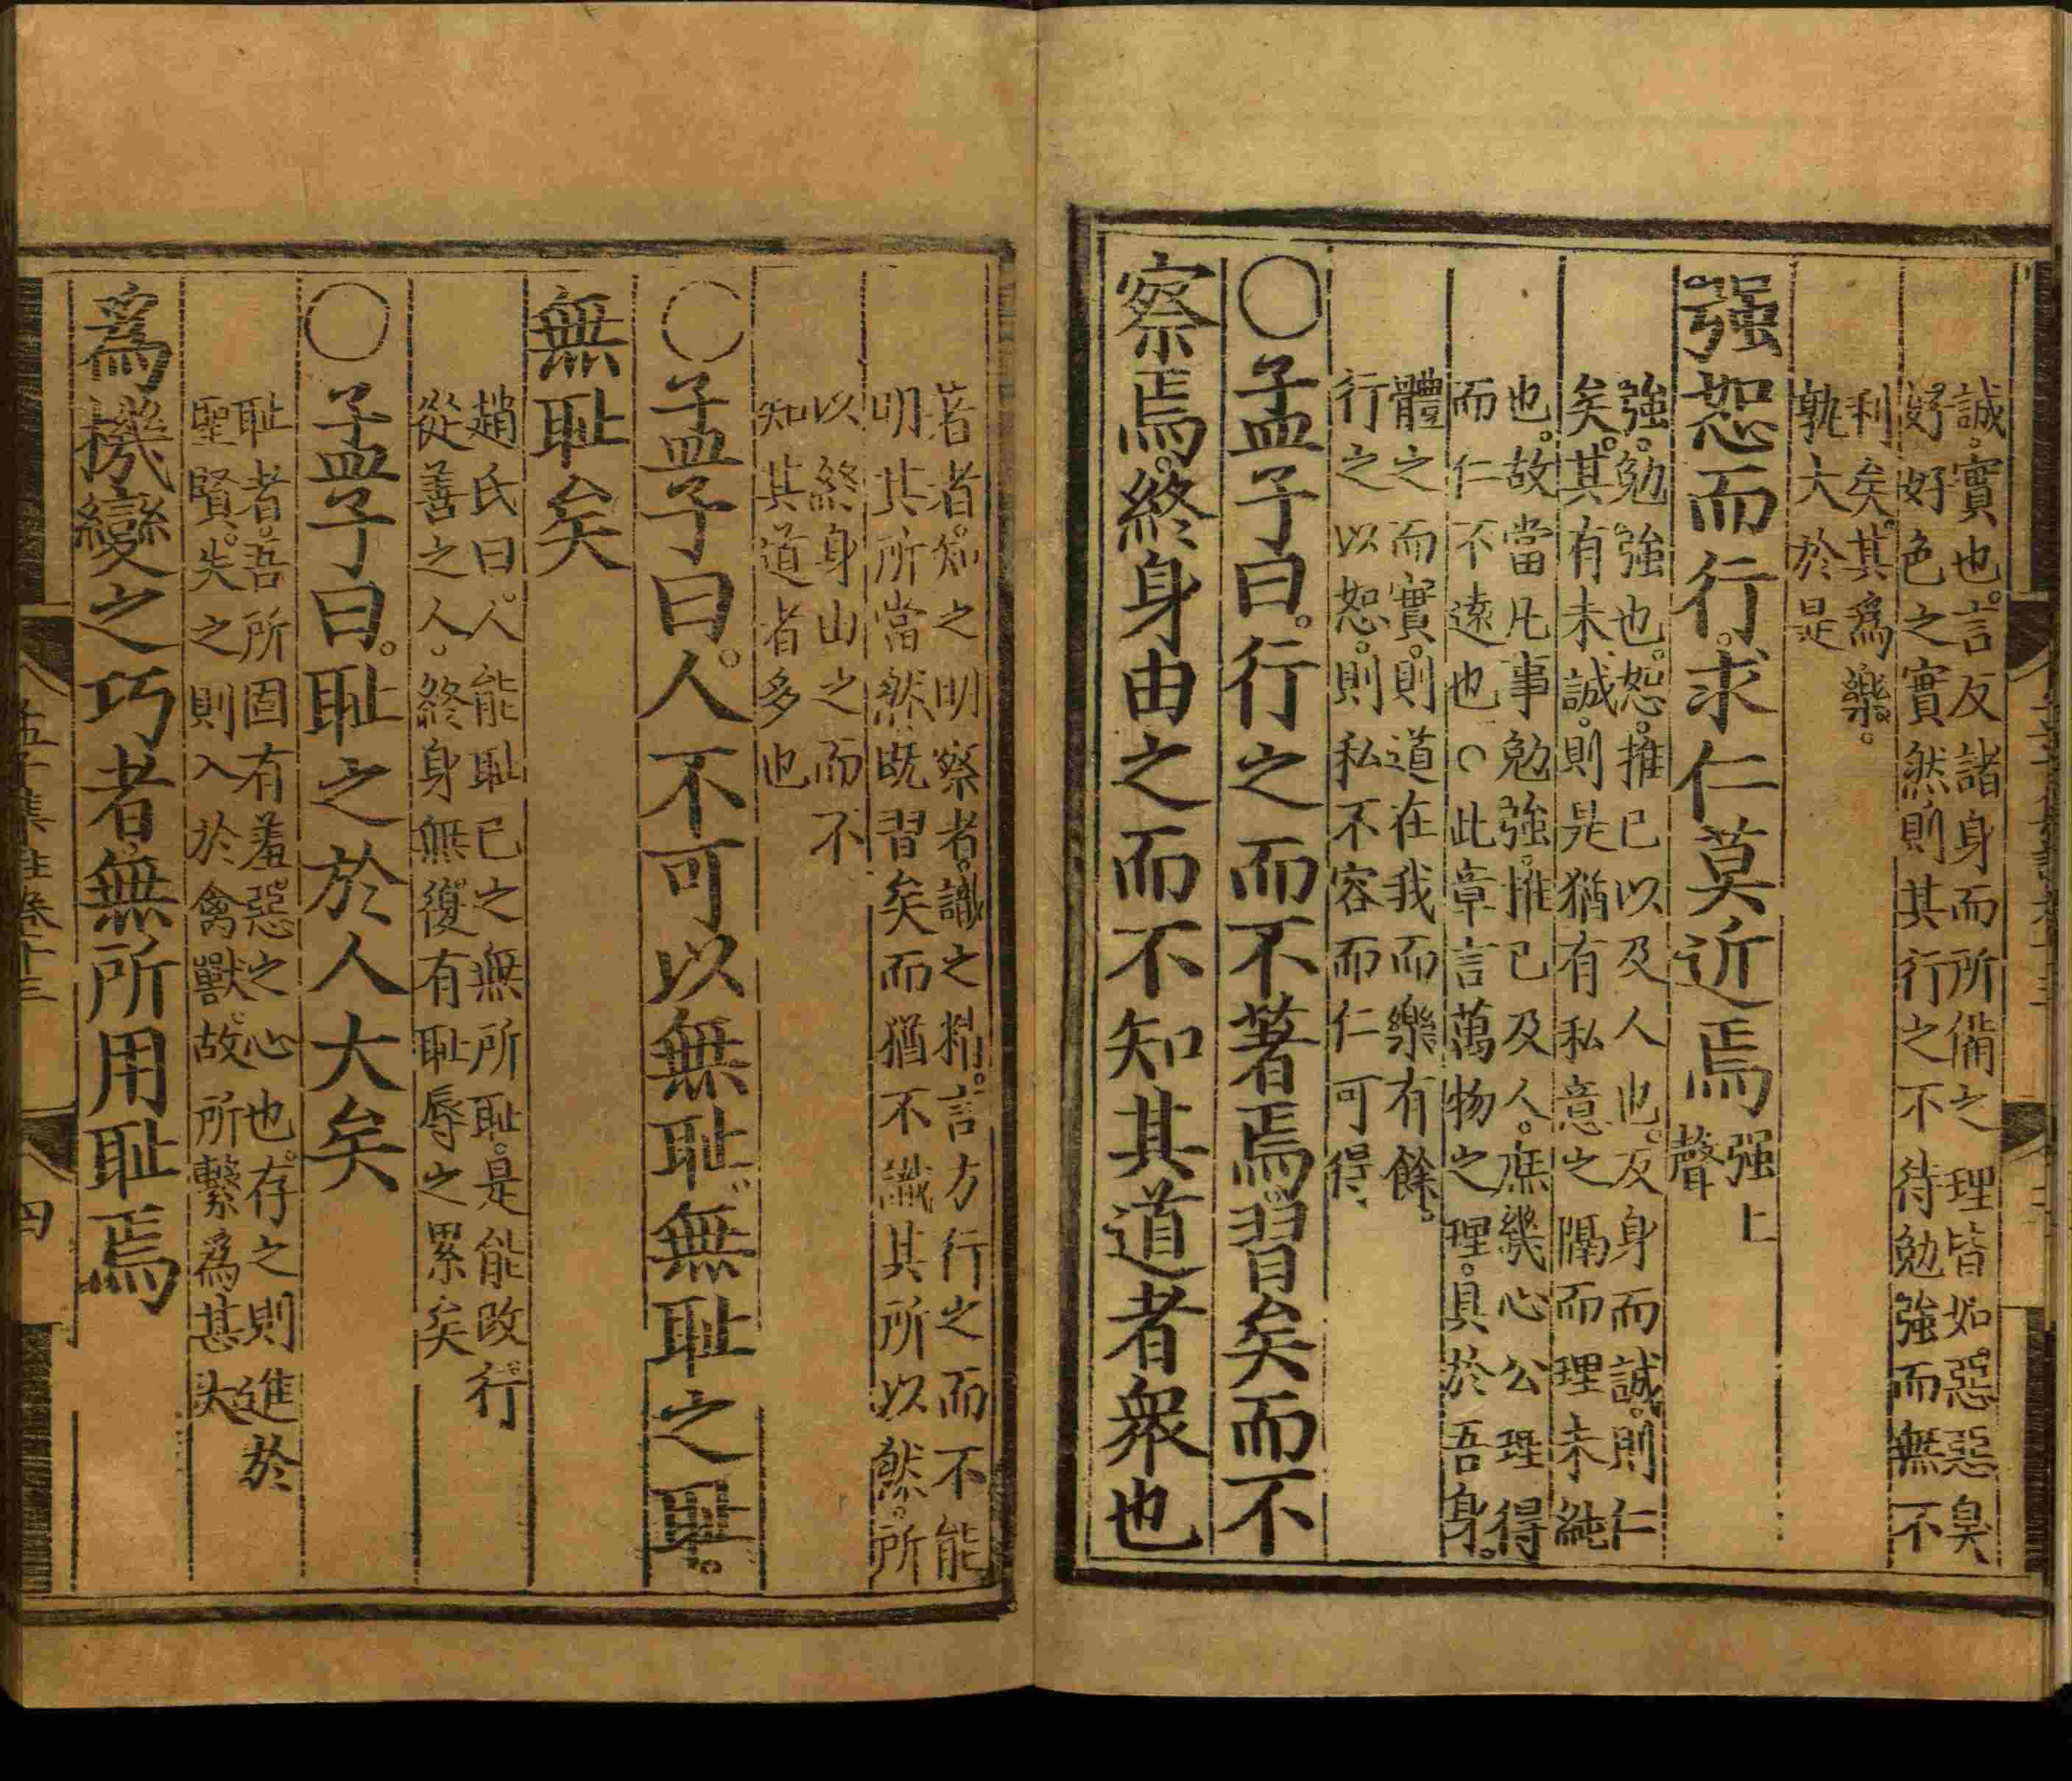 誠。實也。言反諸身而所備之理皆如惡惡臭
好好色之實然則其行之不待勉強而無不
利矣。其爲樂。
孰大於是
强恕而行。求仁莫近焉强上
聲
強。勉強也。恕。推已以及人也。反身而誠。則仁
矣。其有未誠。則是猶有私意之隔而理未純
也。故當凡事勉強。推已及人。庶幾心公理得
而仁不遠也○此章言萬物之理。具於吾身。
體之而實。則道在我而樂有餘。
行之以恕。則私不容而仁可得、
○孟子曰。行之而不著焉習矣而不
察焉。終身由之而不知其道者衆也
著者。知之明察者。識之精。言方行之而不能
明其所當然既習矣而猶不識其所以然。所
以終身由之而不
知其道者多也
○孟子曰。人不可以無耻。無耻之耻。
無耻矣
趙氏曰。人能耻已之無所耻。是能改行
從善之人。終身無復有耻辱之累矣
○孟子曰。耻之於人大矣
耻者。吾所固有羞惡之心也。存之則進於
聖賢。失之則入於禽獸。故所繫爲甚大
爲機變之巧者。無所用耻焉
孟子集註卷十三
四